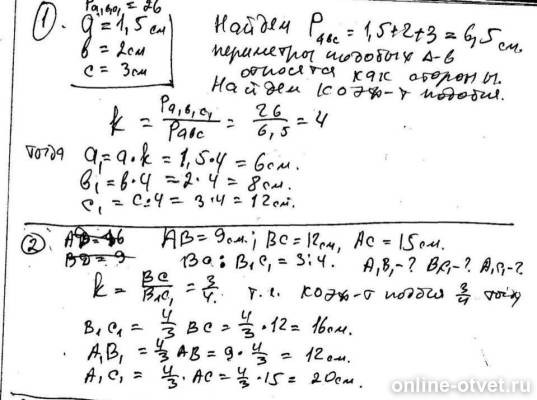 1. P a₁b₁c₁ = 26
a = 1,5 см
в = 2 см
c = 3 см
Найдем P авс = 1,5+2+3 = 6,5 см.
периметры подобных Δ-в
относятся как стороны.
Найдем коэф-т подобия.
k = P a₁b₁c₁ / P авс = 26 / 6,5 = 4
тогда a₁ = a·k = 1,5·4 = 6 см.
в₁ = в·4 = 2·4 = 8 см.
c₁ = c·4 = 3·4 = 12 см.
2. AB = 9 см; BC = 12 см, AC = 15 см.
BC : B₁C₁ = 3:4. A₁B₁-? B₁C₁-? A₁C₁-?
k = BC / B₁C₁ = 3/4. т.к. коэф-т подобия 3/4 тогда
B₁C₁ = 4/3 BC = 4/3 · 12 = 16 см.
A₁B₁ = 4/3 AB = 9 · 4/3 = 12 см.
A₁C₁ = 4/3 · AC = 4/3 · 15 = 20 см.
online-otvet.ru